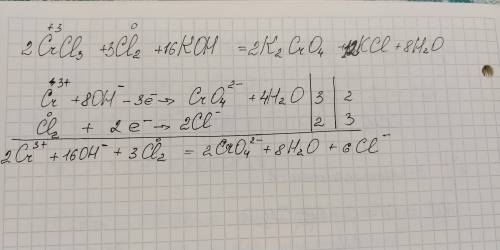 +3 0
2CrCl₃ + 3Cl₂ + 16KOH = 2K₂CrO₄ + 12KCl + 8H₂O
Cr³⁺ + 8OH⁻ - 3e⁻ → CrO₄²⁻ + 4H₂O | 3 | 2
Cl₂ + 2e⁻ → 2Cl⁻ | 2 | 3
2Cr³⁺ + 16OH⁻ + 3Cl₂ = 2CrO₄²⁻ + 8H₂O + 6Cl⁻